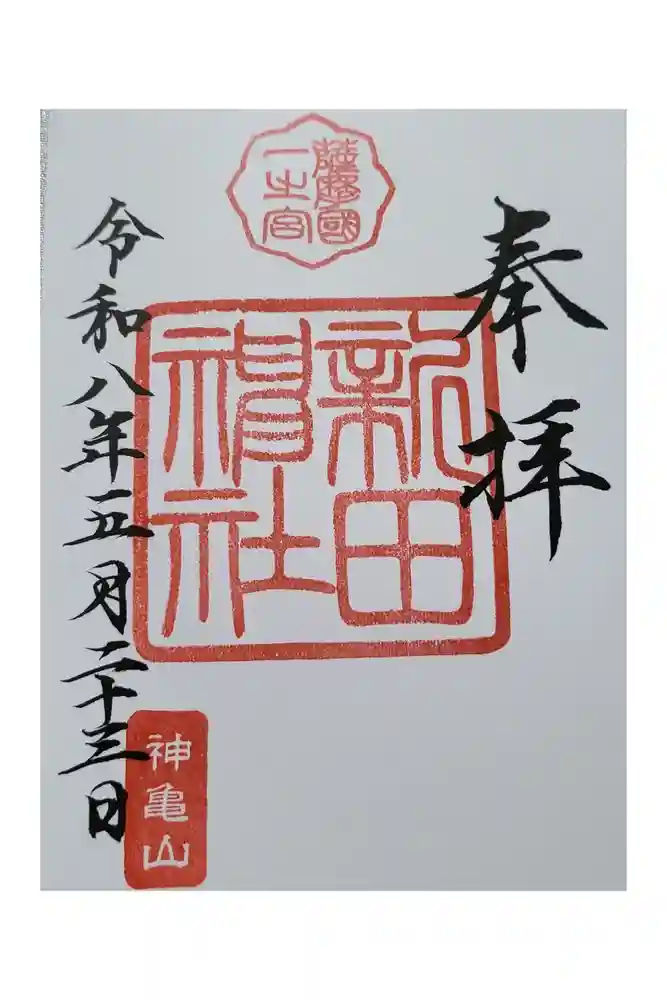 奉拝
薩摩國
一之宮
新田
神社
令和八年五月二十三日
神亀山